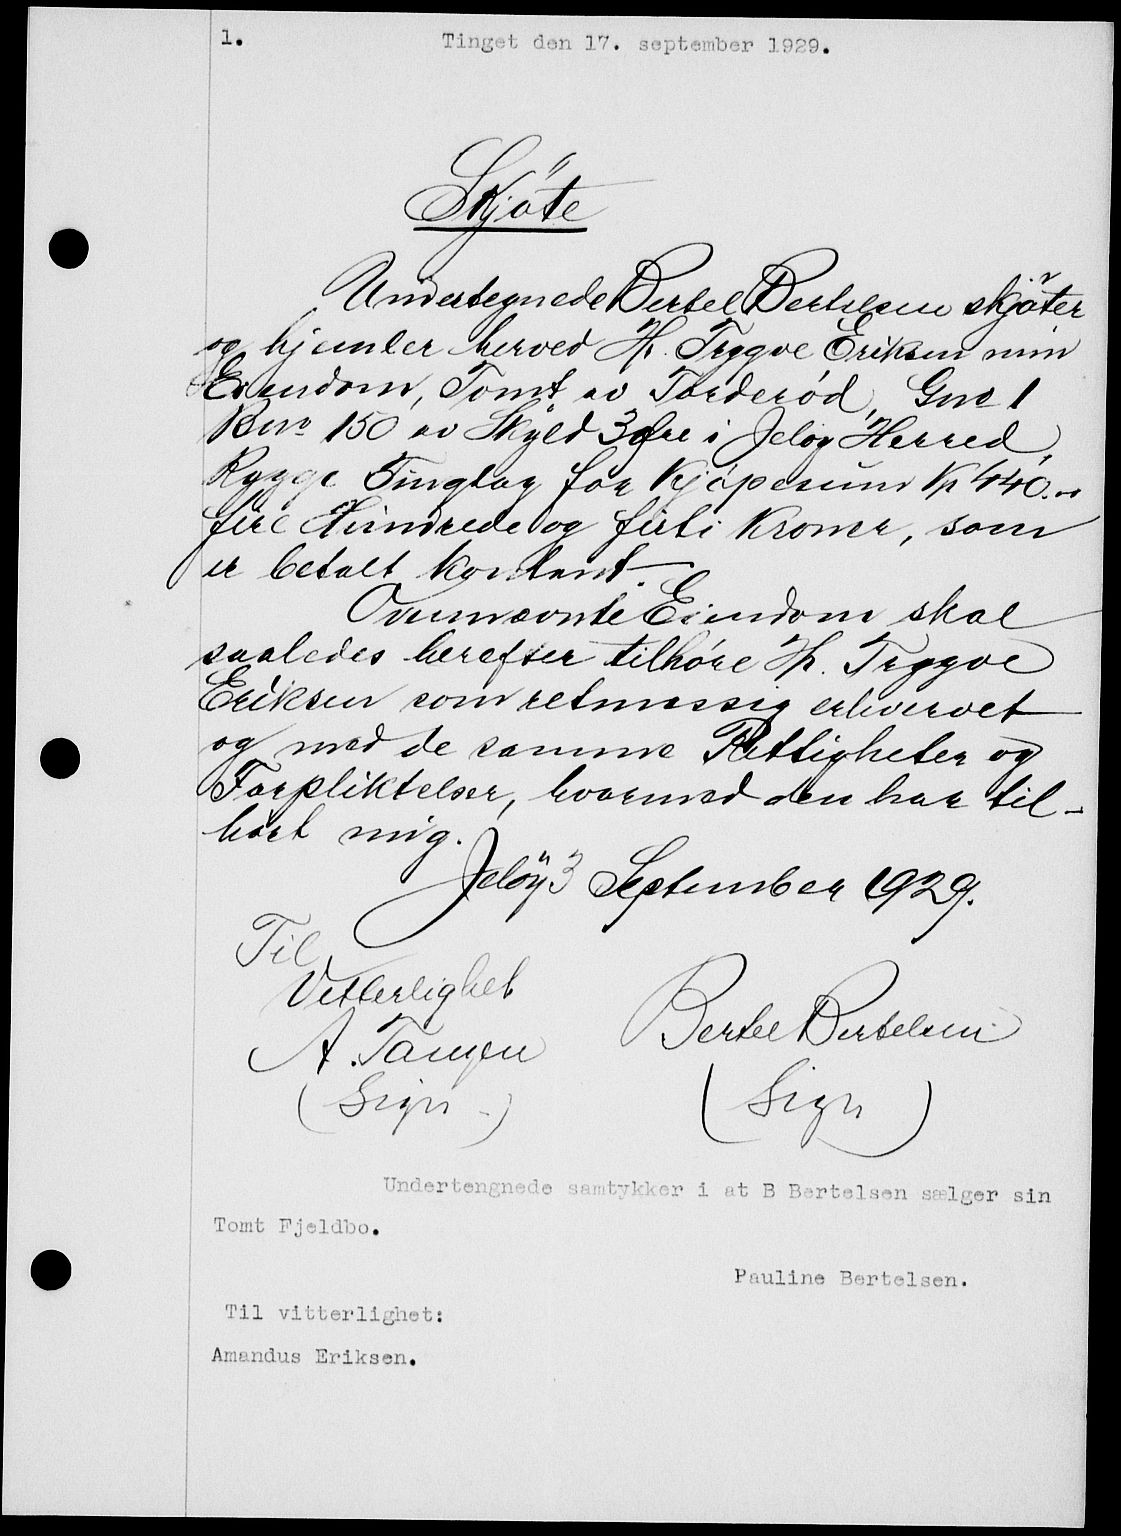 1.
Tinget den 17. september 1929.
Skjöte
Undertegnede Bertel Bertelsen skjöter
og hjemler herved Hr. Trygve Eriksen min
Eiendom, Tomt av Torderød, Gno 1
Bno 150 av Skyld 3 Øre i Jeløy Herred,
Rygge Tinglag for Kjøpesum Kr 440.-
fire Hundrede og firti Kroner, som
er betalt kontant.
Ovennævnte Eiendom skal
saaledes herefter tilhøre Hr. Trygve
Eriksen som retmæssig erhvervet
og med de samme Rettigheter og
Forpliktelser, hvormed den har til-
hørt mig.
Jeløy 3 September 1929.
Til
Vitterlighet
A. Tangen
(Sign.)
Bertel Bertelsen
(Sign)
Undertengnede samtykker i at B Bertelsen sælger sin
Tomt Fjeldbo.
Pauline Bertelsen.
Til vitterlighet:
Amandus Eriksen.